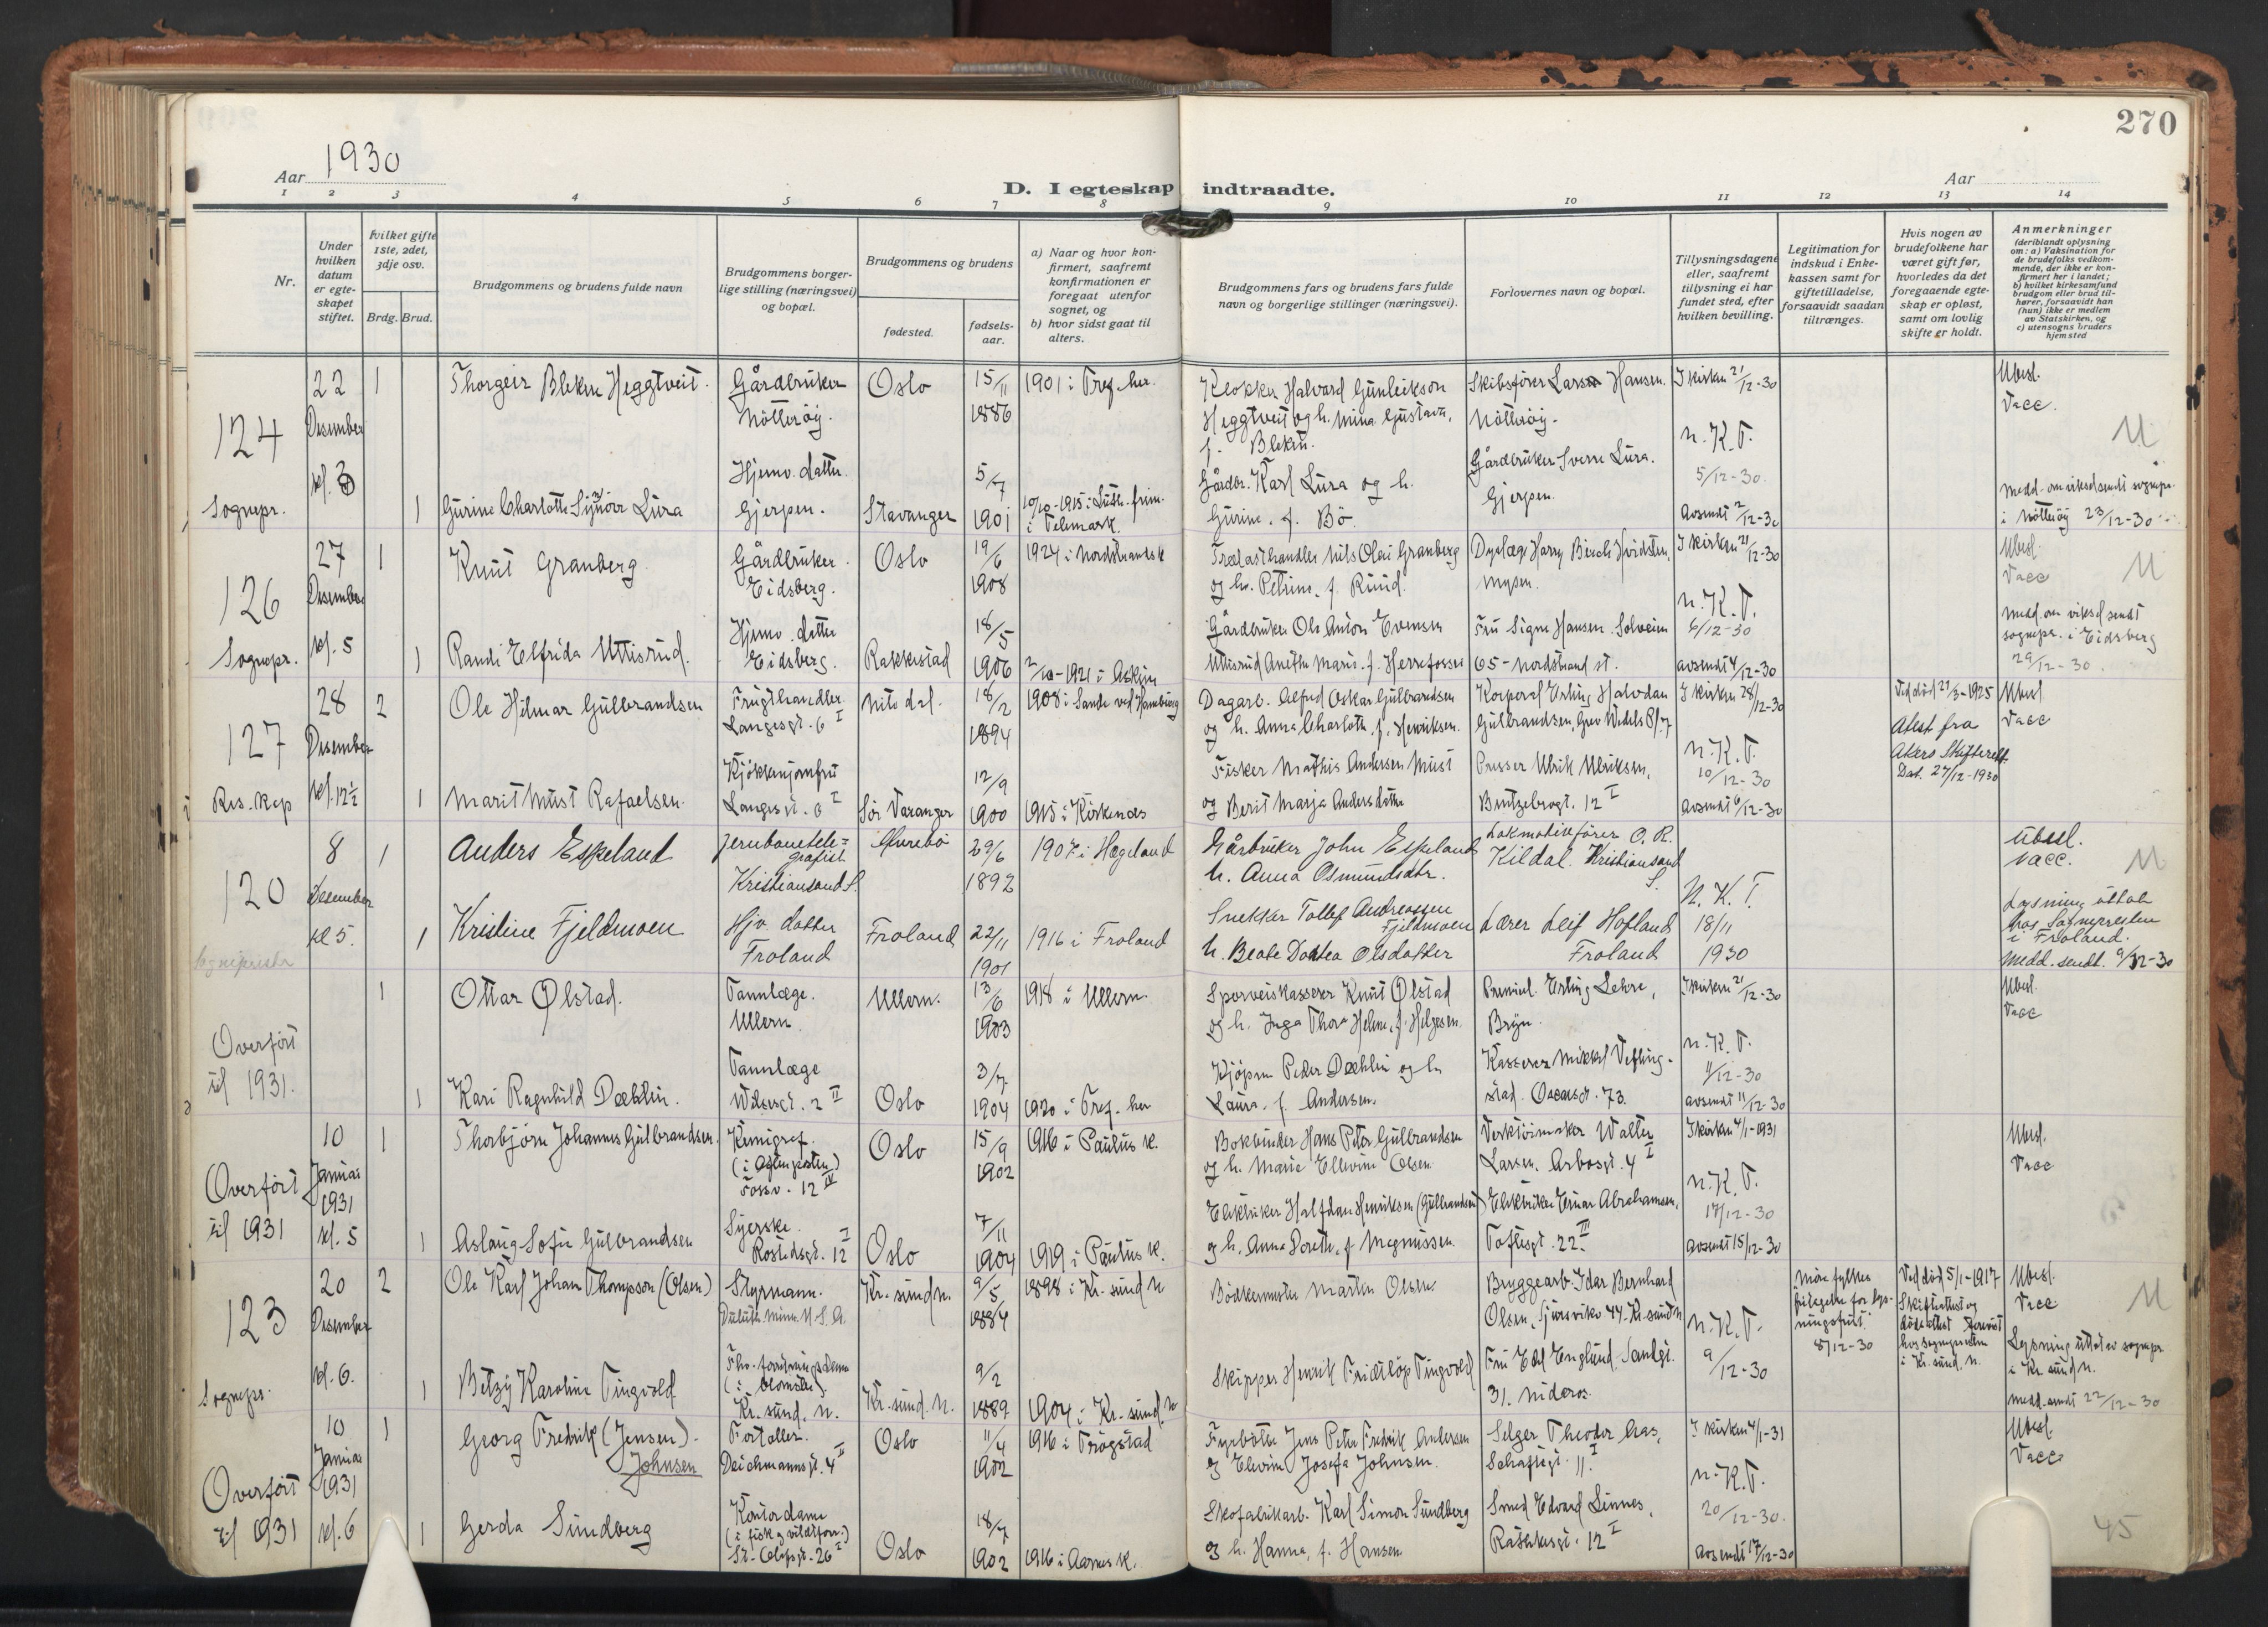 270
Aar 1930
D. I egteskap indtraadte.
Aar
1 2 3 4 5 6 7 8 9 10 11 12 13 14
Nr.
Under hvilken datum er egteskapet stiftet.
Hvilket gifte 1ste, 2det, 3dje osv.
Brdg. Brud.
Brudgommens og brudens fulde navn
Brudgommens borgerlige stilling (næringsvei) og bopæl.
Brudgommens og brudens
fødested.
fødselsaar.
a) Naar og hvor konfirmert, saafremt konfirmationen er foregaat utenfor sognet, og
b) hvor sidst gaat til alters.
Brudgommens fars og brudens fars fulde navn og borgerlige stillinger (næringsvei).
Forlovernes navn og bopæl.
Tillysningsdagene eller, saafremt tillysning ei har fundet sted, efter hvilken bevilling.
Legitimation for indskud i Enkekassen samt for giftetilladelse, forsaavidt saadan tiltrænges.
Hvis nogen av brudefolkene har været gift før, hvorledes da det foregaaende egteskap er opløst, samt om lovlig skifte er holdt.
Anmerkninger
(deriblandt oplysning om: a) Vaksination for de brudefolks vedkommende, der ikke er konfirmert her i landet; b) hvilket kirkesamfund brudgom eller brud tilhører, forsaavidt han (hun) ikke er medlem av Statskirken, og c) utensogns bruders hjemsted
124
22 Desember kl. 3
Sognepr.
1 Thorgeir Bleken Heggtveit. Gårdbruker Nøtterøy. Oslo 15/11 1886 1901 i Tref. her.
Klokker Halvard Gunleikson
Heggtveit og h. Mina Gustava,
f. Blekén.
Skibsfører Lars Hansen.
Nøtterøy.
I kirken 21/12-30
N.K.T.
5/12-30.
Avsendt 2/12-30
Ubesl.
Vacc.
M
1 Gurine Charlotte Synøve Lura Hjemv. datter. Gjerpen. Stavanger 5/7 1901 10/10-1915 i Luth. frim. i Telemark.
Gårdbr. Karl Lura og h.
Gurine, f. Bø.
Gårdbruker Sverre Lura.
Gjerpen.
Medd. om vielsd sendt sognepr.
i Nøtterøy 23/12-30
126
27 Desember kl. 5
Sognepr.
1 Knut Granberg Gårdbruker. Eidsberg. Oslo 19/6 1908 1924 i Nordstrands k
Trælasthandler Nils Olai Granberg
og h. Petrine, f. Ruud.
Dyrlæge Harry Birch Hvidsten,
Mysen.
I kirken 21/12-30
N.K.T.
6/12-30
avsendt 4/12-30
Ubesl.
Vacc
M
1 Randi Elfrida Uttisrud. Hjemv. datter Eidsberg. Rakkestad 18/5 1906 2/10-1921 i Askim
Gårdbruker Ole Anton Evensen
Uttisrud Anethe Marie, f. Herrefosser
Fru Signe Hansen. Solveien
65 - Nordstrand st.
Medd. om vielsd sendt
sognepr. i Eidsberg
29/12-30.
127
28 Desember kl. 12½
Res. Kap
2 Ole Hilmar Gulbrandsen Frugthandler Langesgt. 6 I Nitedal. 18/2 1894 1908 i Sande
Dagarb. Alfred Oskar Gulbrandsen
og h. Anna Charlotte, f. Henriksen.
Korporal Erling Halvdan
Gulbrandsen, Grev Wedels Pl. 7
I kirken 28/12-30
N.K.T.
10/12-30
avsendt 6/12-30
Ved død 21/3-1925
Atest fra
Akers Skifterett.
Dat. 27/12-1930
Ubesl
Vacc
1 Marit Must Rafaelsen. Kjøkkenjomfru Langesgt. 6 I Sør Varanger 12/9 1900 1915 i Kirkenes
Fisker Mathis Andersen Must
og Berit Marja Andersdatter
Presser Ulrik Ulriksen,
Bentzebrogt. 12 I
120
8 Desember kl 5.
Sogneprester
1 Anders Espeland Jernbanetelegrafist Kristiansand S. Øvrebø 29/6 1892 1907 i Hægeland
Gårbruker John Espeland
h. Anna Osmundsdtr.
Lokomotivfører O. R.
Kildal. Kristiansand S.
N.K.T.
18/11
1930
Ubesl.
vacc.
M
1 Kristine Fjeldmoen Hjv. datter Froland Froland 22/11 1901 1916 i Froland
Snekker Tollef Andreassen
Fjeldmoen
h. Beate Dortea Olsdatter
Lærer Leif Hofland
Froland
Lysning uttatt
hos Sognepresten
i Froland.
Medd. sendt. 9/12-30
Overført
til 1931.
1 Ottar Ølstad. Tannlæge. Ullern. Ullern. 13/6 1903 1918 i Ullern.
Sporveiskasserer Knut Ølstad
og h. Inga Thora Helene, f. Helgesen.
Premierl. Erling Lehre,
Bryn.
I kirken 21/12-30
N.K.T.
11/12-30
avsendt 11/12-30
Ubesl.
Vacc
1 Kari Ragnhild Dæhlin. Tannlæge Wilsesgt. 2 II Oslo 3/7 1904 1920 i Tref. her
Kjøpm. Peder Dæhlin og h
Laura, f. Andersen.
Kasserer Mikkel Vefling-
stad. Oscarsgt. 73.
Overført
til 1931
10 Januar 1931 kl. 5
1 Thorbjørn Johannes Gulbrandsen. Kemigraf. (i Aftenposten) Fossv. 12 IV Oslo 15/9 1902 1916 i Paulus k.
Bokbinder Hans Peter Gulbrandsen
og h. Marie Ellevine Olsen
Verktøimaker Walter
Larsen, Arbosgt. 4 I
I kirken 4/1-1931
N.K.T.
17/12-30
avsendt 15/12-30
Ubesl.
Vacc
1 Aslaug Sofie Gulbrandsen Syerske. Rostedsgt. 12 I Oslo 7/11 1904 1919 i Paulus k.
Elektriker Halfdan Henriksen (Gulbrandsen)
og h. Anna Dorette, f. Magnussen.
Elektriker Einar Abrahamsen,
Toftesgt. 22 II
123
20 Desember kl. 6.
Sognepr.
2 Ole Karl Johan Thompson (Olsen) Styrmann. Duluth Minn. U.S.A. Kr. sund N. 9/5 1884 1898 i Kr. sund N
Bødkermester Martin Olsen.
Bryggearb. Idar Bernhard
Olsen, 44. Kr. sund N
N.K.T.
9/12-30
Møre fylkes
fritagelse for lys-
ningsfrist.
8/12-30
Ved død 5/1-1917
Skifteattest og
dødsattest forevist
hos sognepresten
i Kr. sund, N.
Ubesl.
Vacc
M
1 Betzy Karoline Tingvold Fhv. forretningsdame (i blomster). Kr. sund, N. Kr. sund. N. 9/2 1889 1904 i Kr. sund. N
Skipper Henrik Tingvold
Fru Edel Englund. Sandgt.
31. Nideros.
Lysning uttatt av sognepr.
i Kr. sund N.
medd. sendt 22/12-30
Overført
til 1931
10 Januar 1931 kl. 6
1 Georg Fredrik (Jensen). Johnsen Fortøller. Deichmannsgt. 4 II Oslo 11/4 1902 1916 i Trøgstad
Fyrbøter Jens Peter Fredrik Andersen
og Elevine Josefa Johnsen.
Selger Theodor Aas,
11 I
I kirken 4/1-31
N.K.T.
20/12-30.
Avsendt 17/12-30
Ubesl
Vacc
1 Gerda Sundberg Kontordame (i fisk og vildtforr.) St. Olafsgt. 26 I Oslo 18/7 1902 1916 i k.
Skofabrikarb. Karl Simon Sundberg
og h. Hanna, f. Hansen
Smed Edvard Linnes,
Rathkesgt. 12 I
45